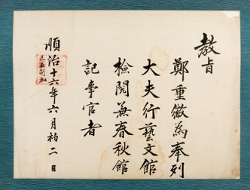 教旨
鄭重徽為奉列
大夫行藝文館
檢閱兼春秋館
記事官者
順治十六年六月初二日